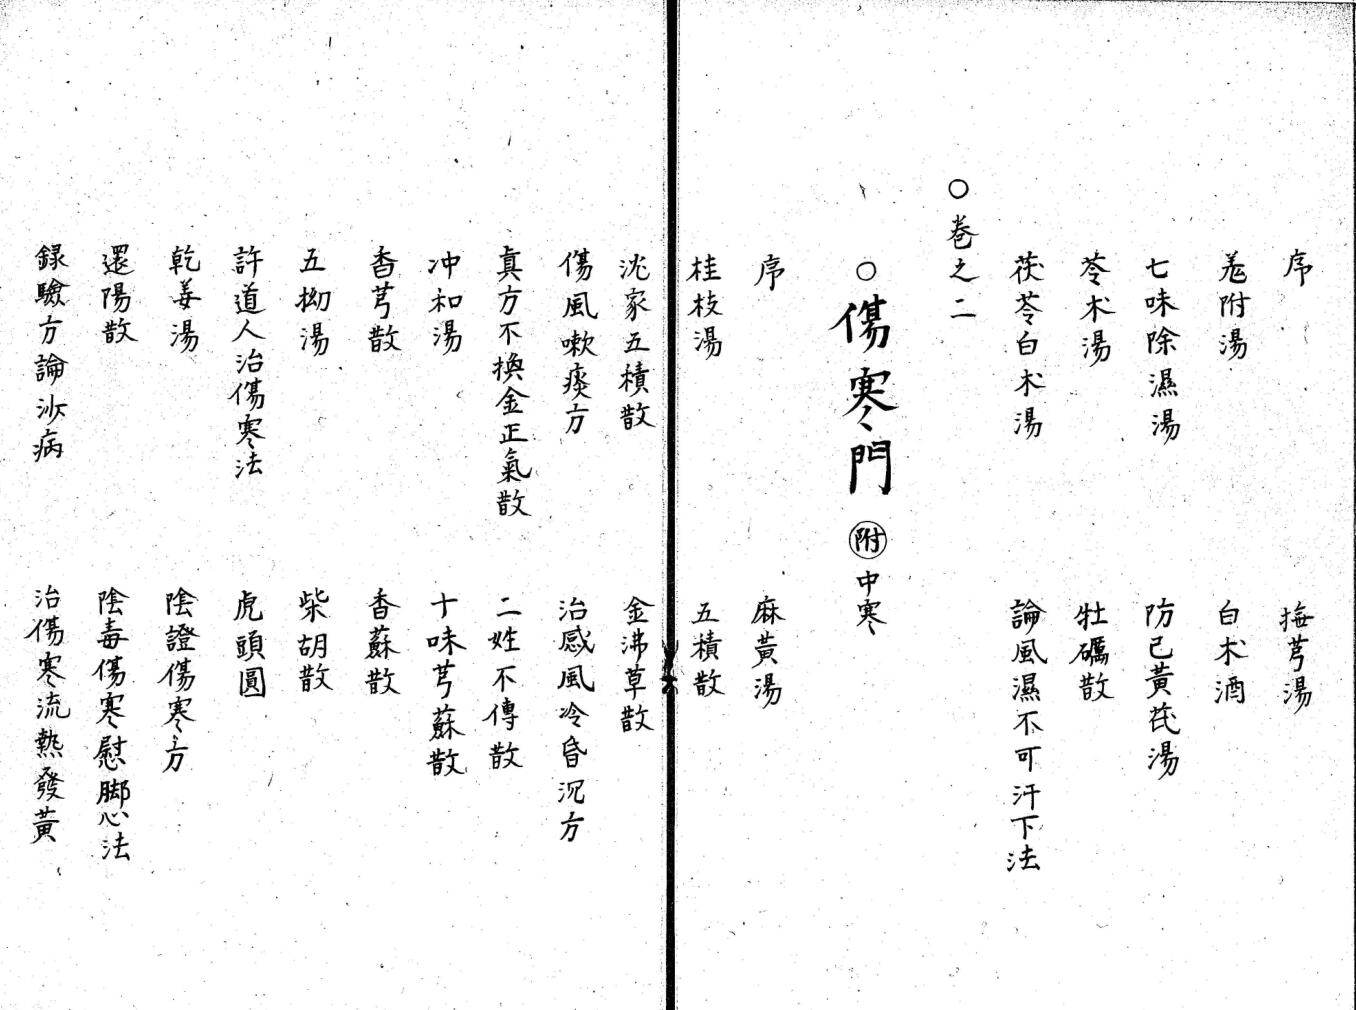 序
撫芎湯
羗附湯
白朮酒
七味除濕湯
防己黃茋湯
苓朮湯
牡礪散
茯苓白朮湯
論風濕不可汗下法
○卷之二
○傷寒門 附 中寒
序
麻黃湯
桂枝湯
五積散
沈家五積散
金沸草散
傷風嗽痰方
治感風冷昏沉方
真方不換金正氣散
二姓不傳散
冲和湯
十味芎蘇散
香芎散
香蘇散
五拗湯
柴胡散
許道人治傷寒法
虎頭圓
乾姜湯
陰證傷寒方
還陽散
陰毒傷寒慰脚心法
録驗方論沙病
治傷寒流熱發黃